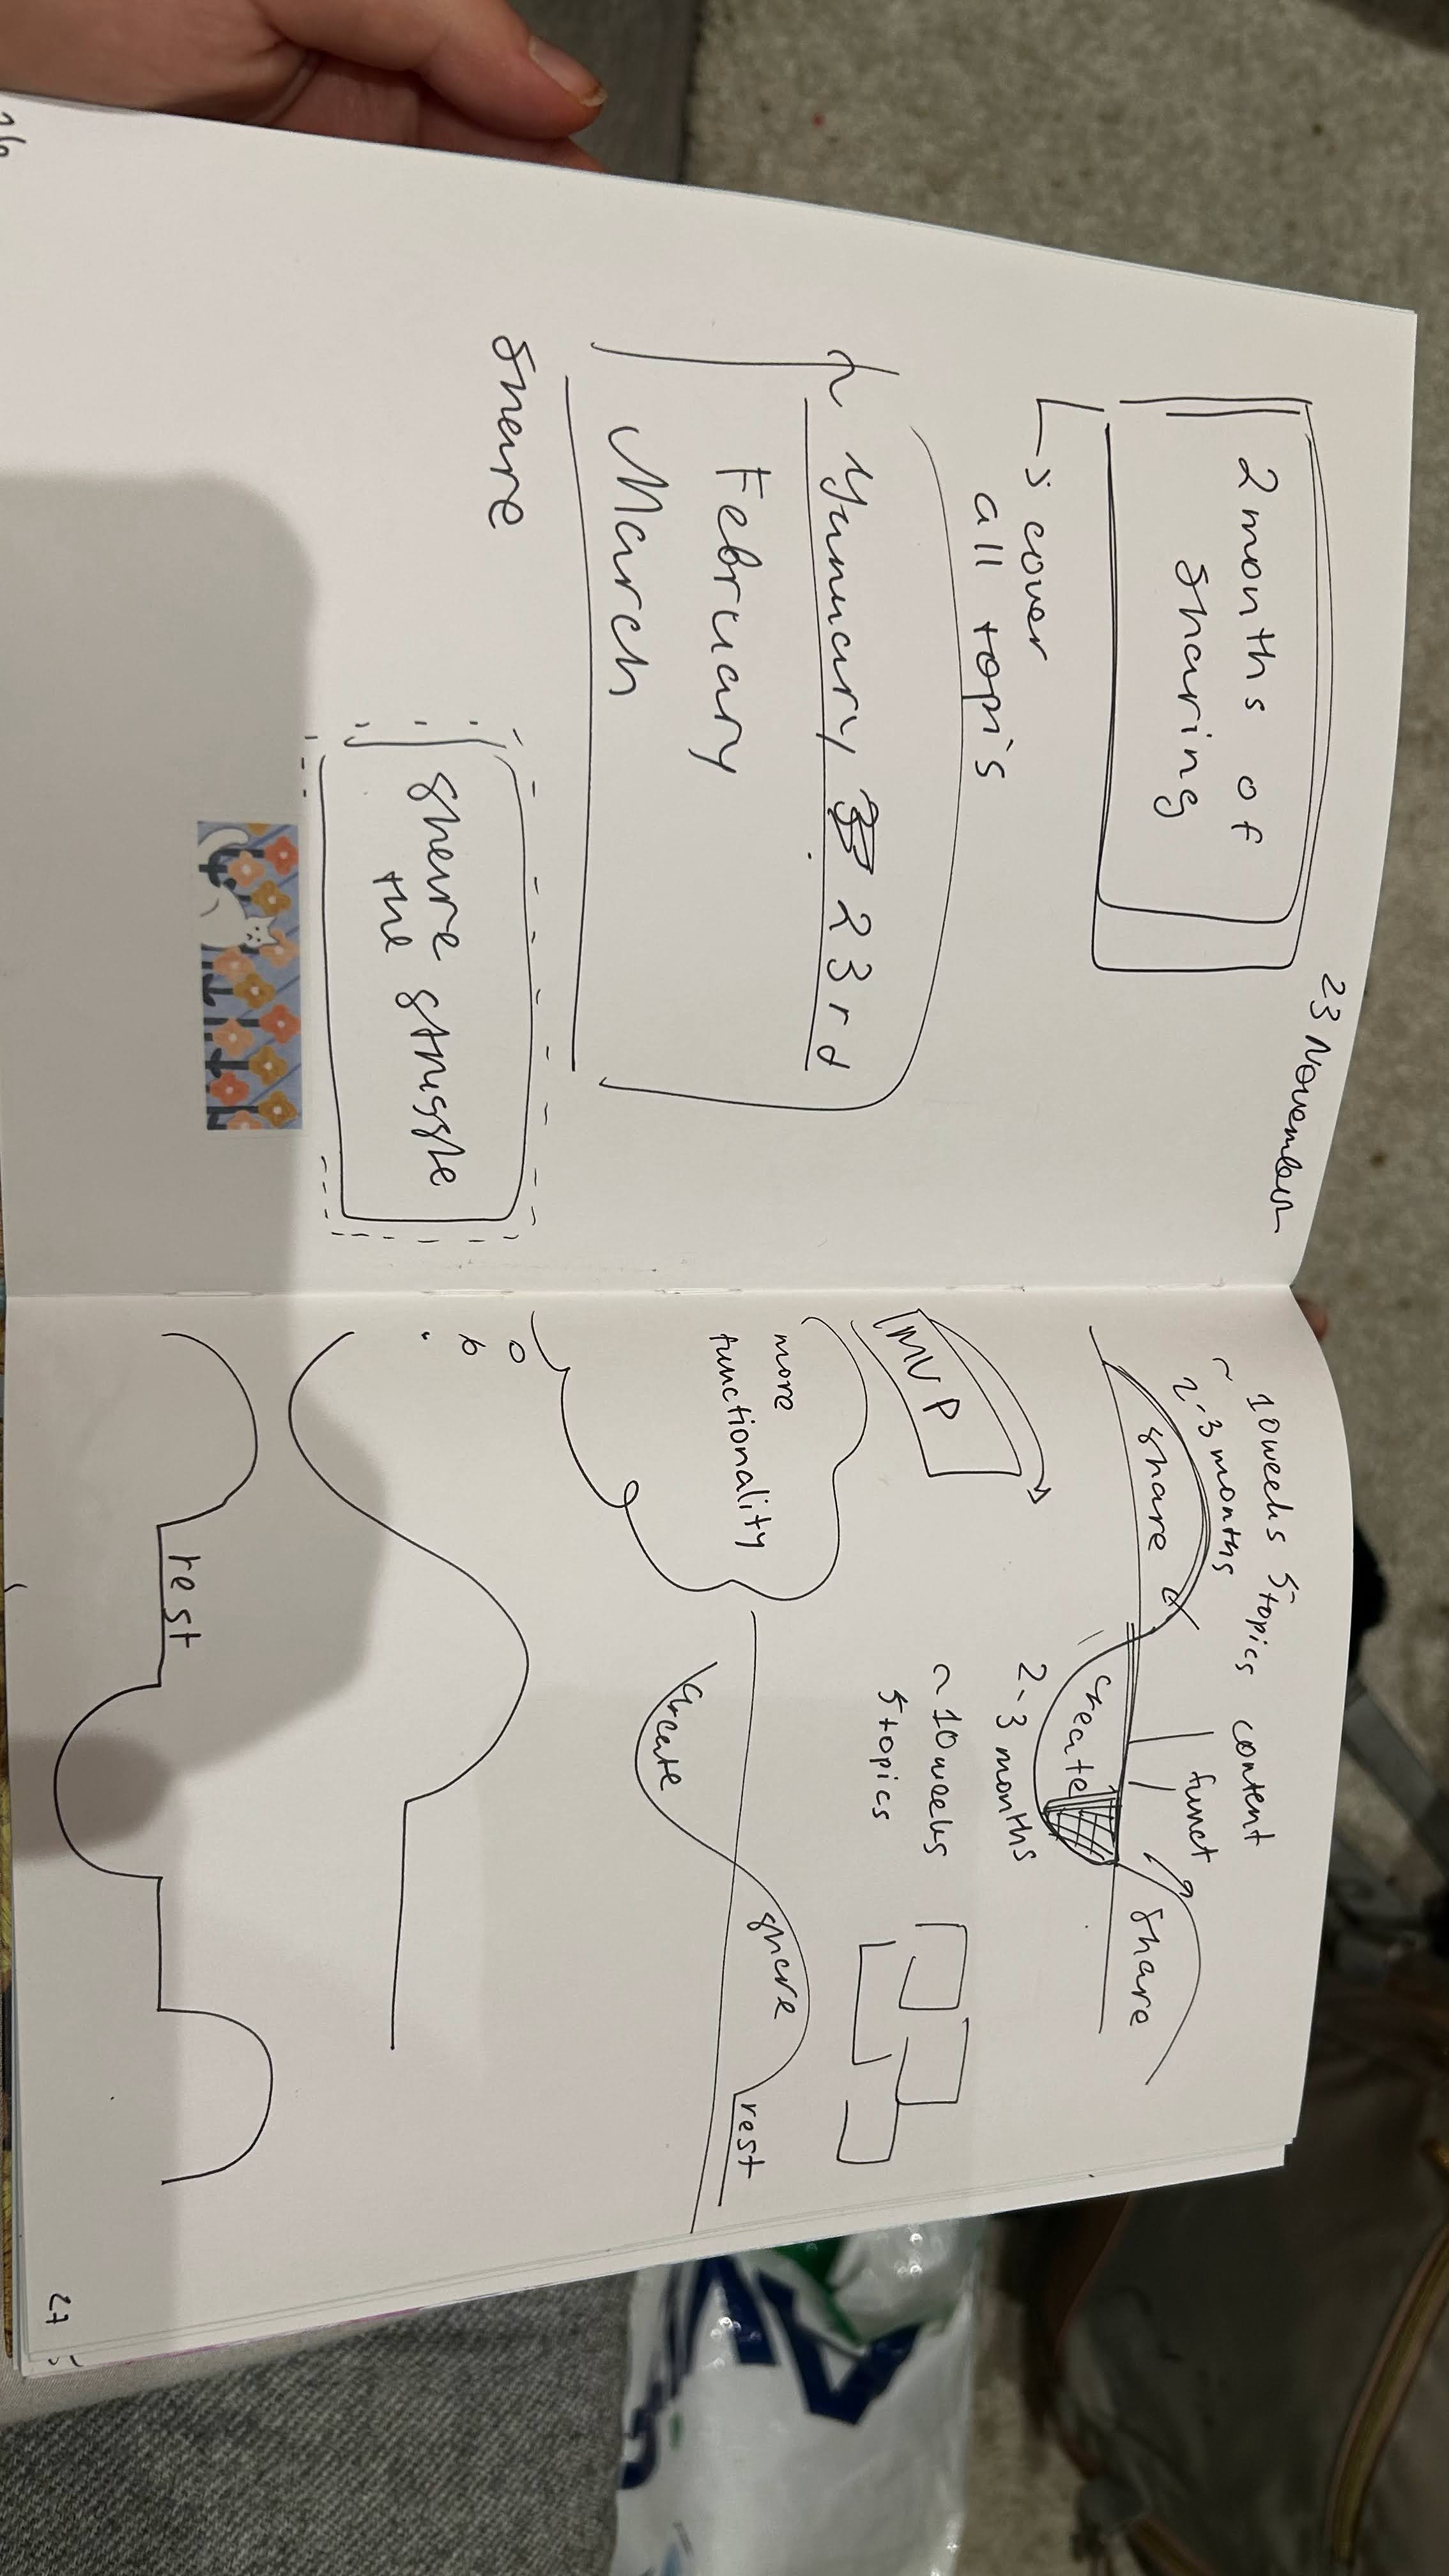 23 November
2 months of
sharing
↳ cover
all topis
~ Yanuary 23rd
February
March
share
share
the struggle
26
~ 10 weeks 5 topics content
2-3 months
funct
share
create
share
MVP
2-3 months
~ 10 weeks
5 topics
more
functionality
create
share
rest
rest
27